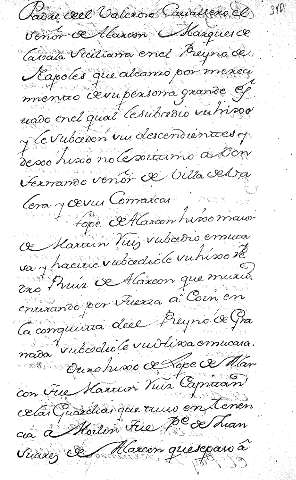 Padre del Valeroso Cavallero el
Señor de Alarcon Marques de
la vala Siciliana en el Reyno de
Napoles que alcanzo por mereci
miento de su persona grande es
tado en el qual le subcedio su hixo
y le subceden sus descendientes y
dexo hixo no lexitimo a Don
Fernando señor de Villa de Va
lera y de sus Comarcas
Lope de Alarcon hixo maior
de Martin Ruiz subcedio en su ca
sa y hacienda subcediole su hixo Pe
dro Ruiz de Alarcon que murio
entrando por fuerza a Coin en
la conquista del Reyno de Gra
nada subcediole su hixa en su casa.
Otro hixo de Lope de Alar
con fue Martin Ruiz Capitan
de las Guardias que tuvo en tenen
cia a Moclin fue Pe de Juan
Suarez de Alarcon que separo a